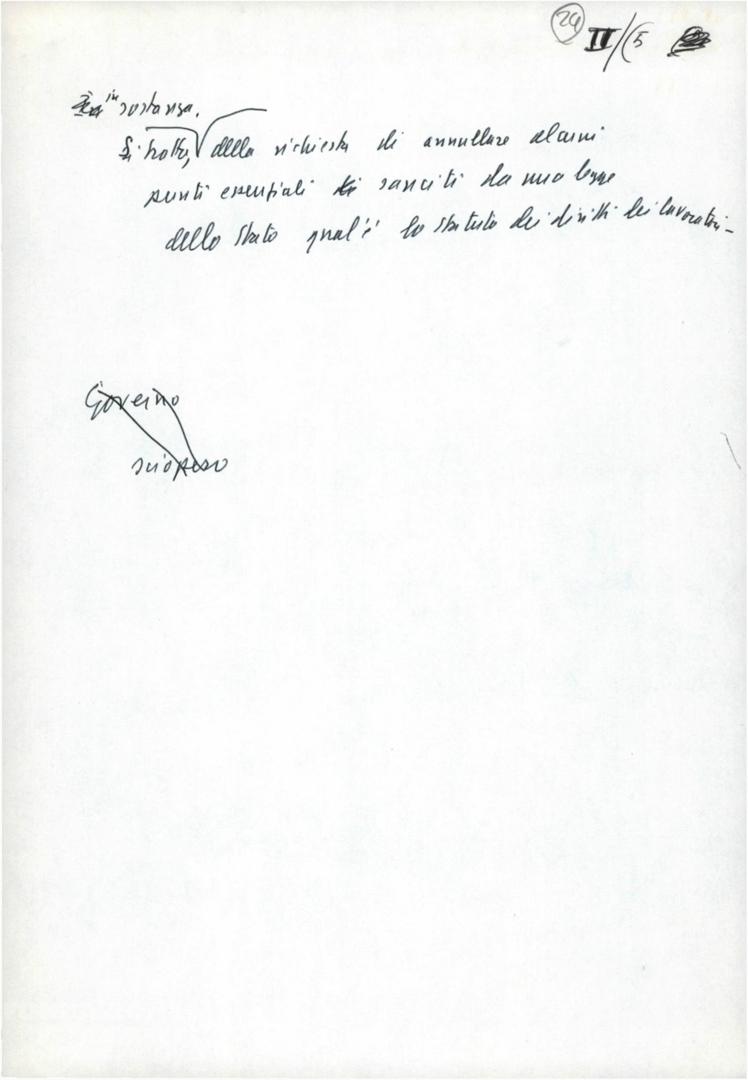 24 II/(5
in sostanza,
Si tratta, della richiesta di annullare alcuni
punti essenziali di sanciti da una legge
dello Stato qual'è lo statuto dei diritti dei lavoratori-
Governo
sciopero